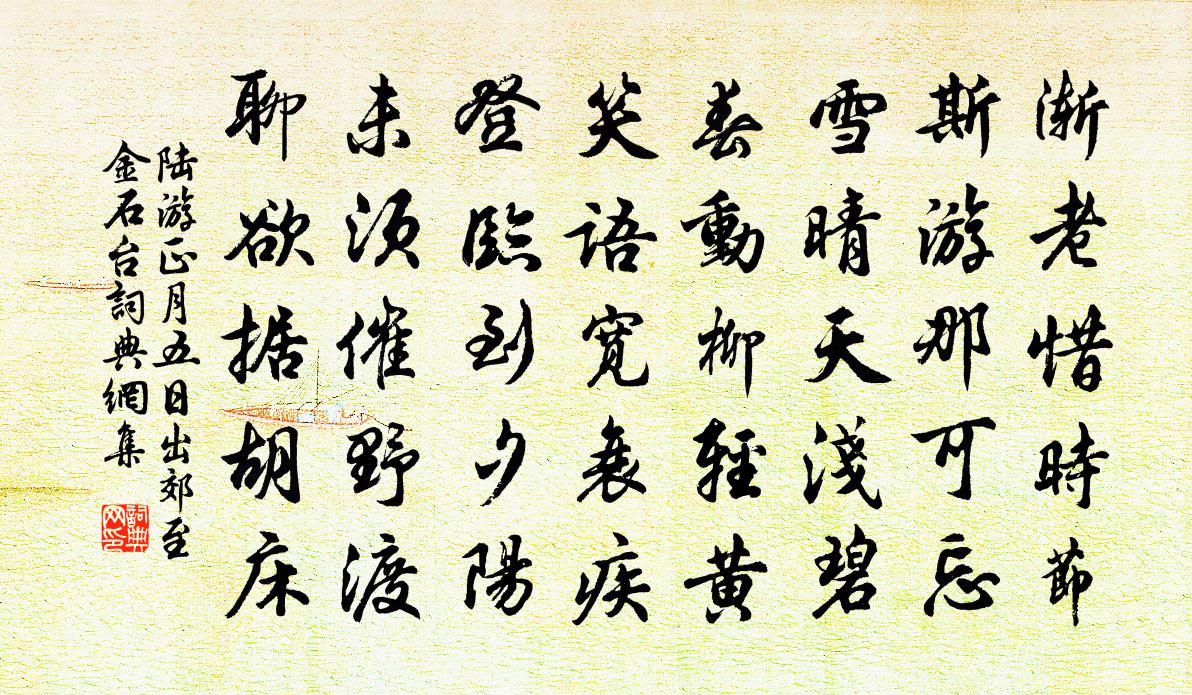 漸老惜時節
斯游那可忘
雪晴天淺碧
春動柳輕黃
笑語寬衰疾
登臨到夕陽
未須催野渡
聊欲据胡床
陆游正月五日出郊至
金石台詞典網集
詞典
网印